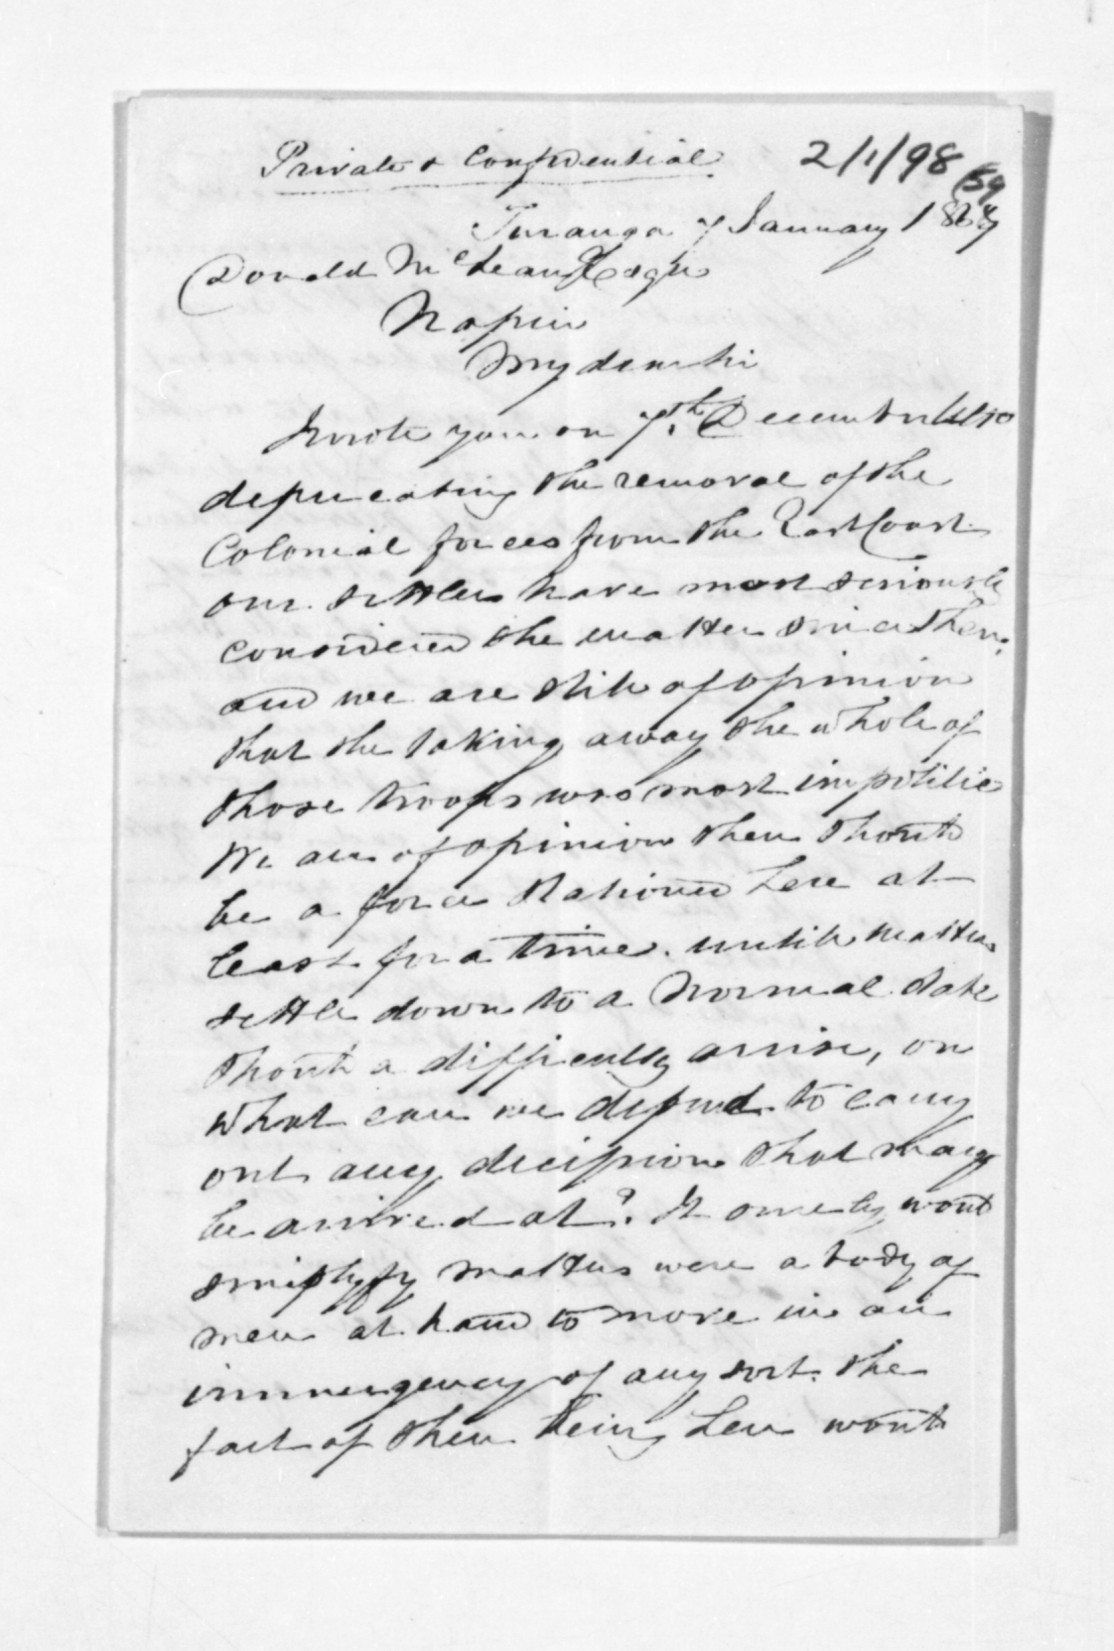 Private & Confidential
2/1/98
69
Turanga 7 January 1867
Donald McLean Esqre
Napier
My dear Sir
I wrote you on 7th. December ulto
deprecating the removal of the
Colonial forces from the East Coast
our settlers have most seriously
considered the matter since then,
and we are still of opinion
that the taking away the whole of
those troops was most impolitic
We are of opinion there should
be a force stationed here at
least for a time. until matters
settle down to a Normal state
should a difficulty arrise, on
what can we depend to carry
out any decission that may
be arrived at? It surely would
simplyfy matters were a body of
men at hand to move in an
immergency of any sort. the
fact of there being here would